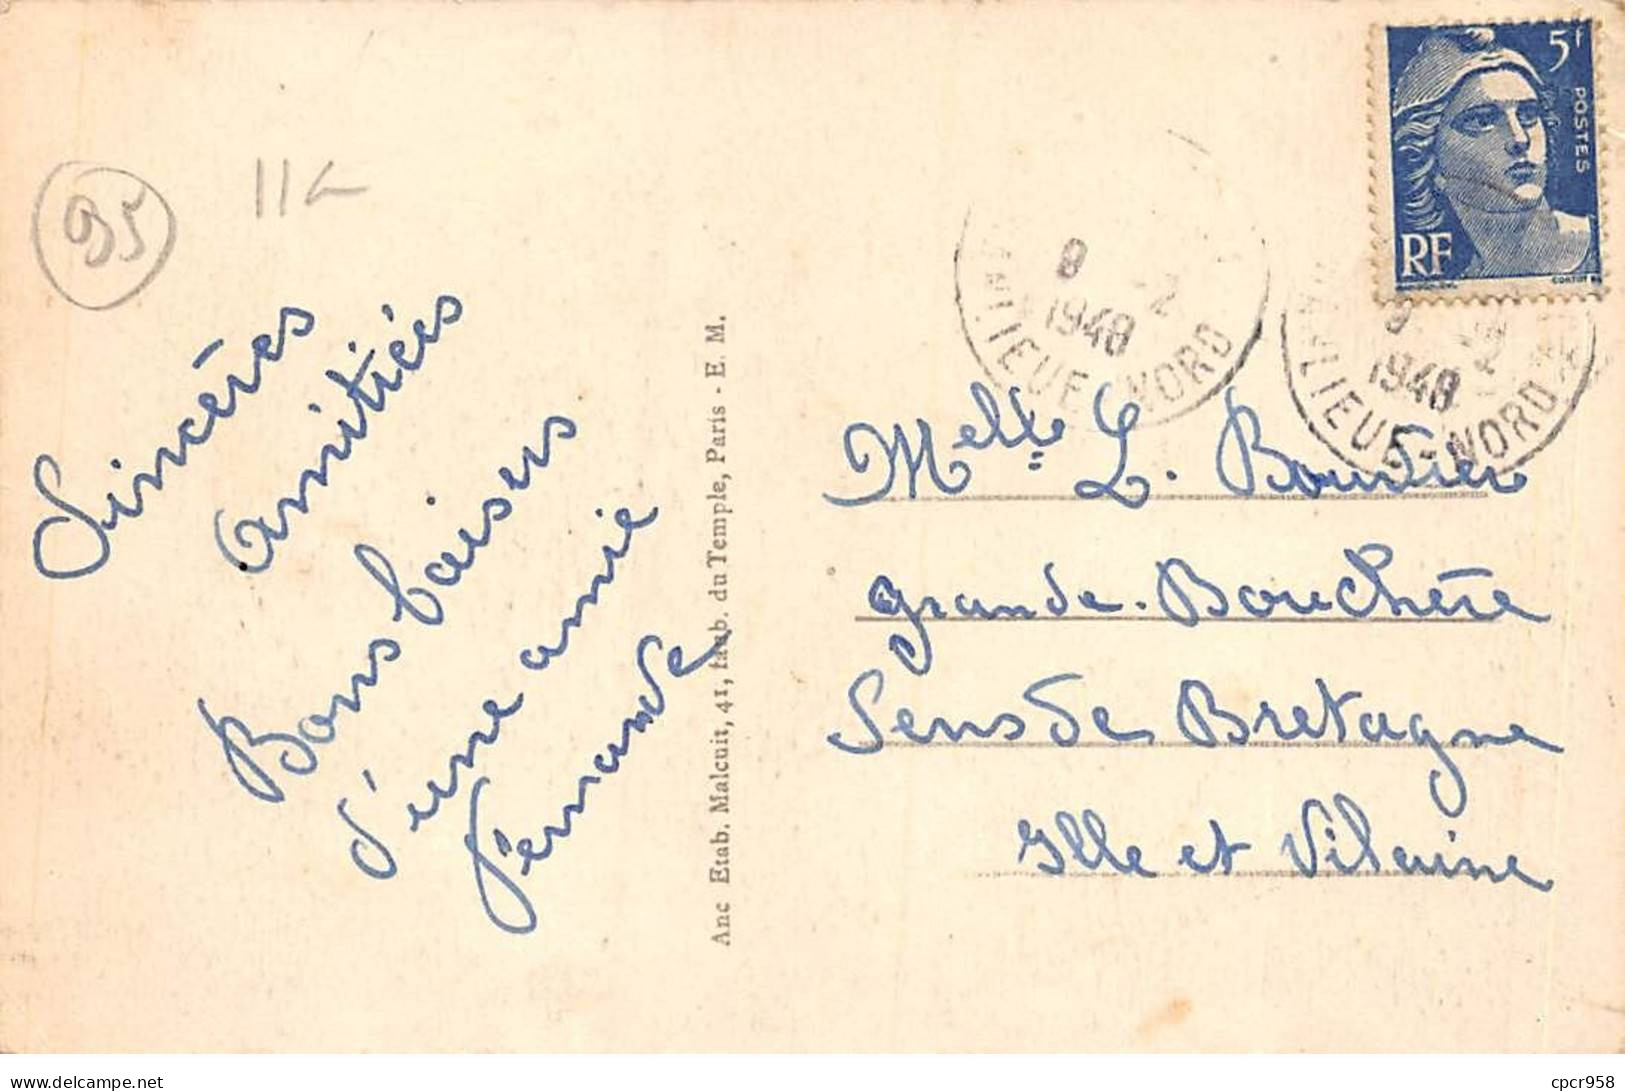 95
11
Sincères
amitiés
Bons baisers
d'une amie
Fernande
Anc Etab. Malcuit, 41, faub. du Temple, Paris - E. M.
5f
POSTES
RF
8 -2
1948
BANLIEUE-NORD
8 -2
1948
BANLIEUE-NORD
Melle L. Bourdier
grande Bouchère
Sens de Bretagne
Ille et Vilaine
www.delcampe.net
cpcr958